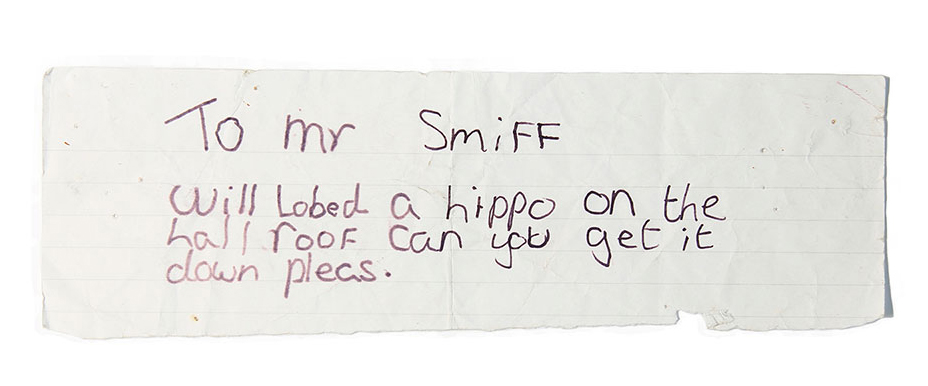 To mr Smiff
Will Lobed a hippo on the
hall roof can you get it
down pleas.